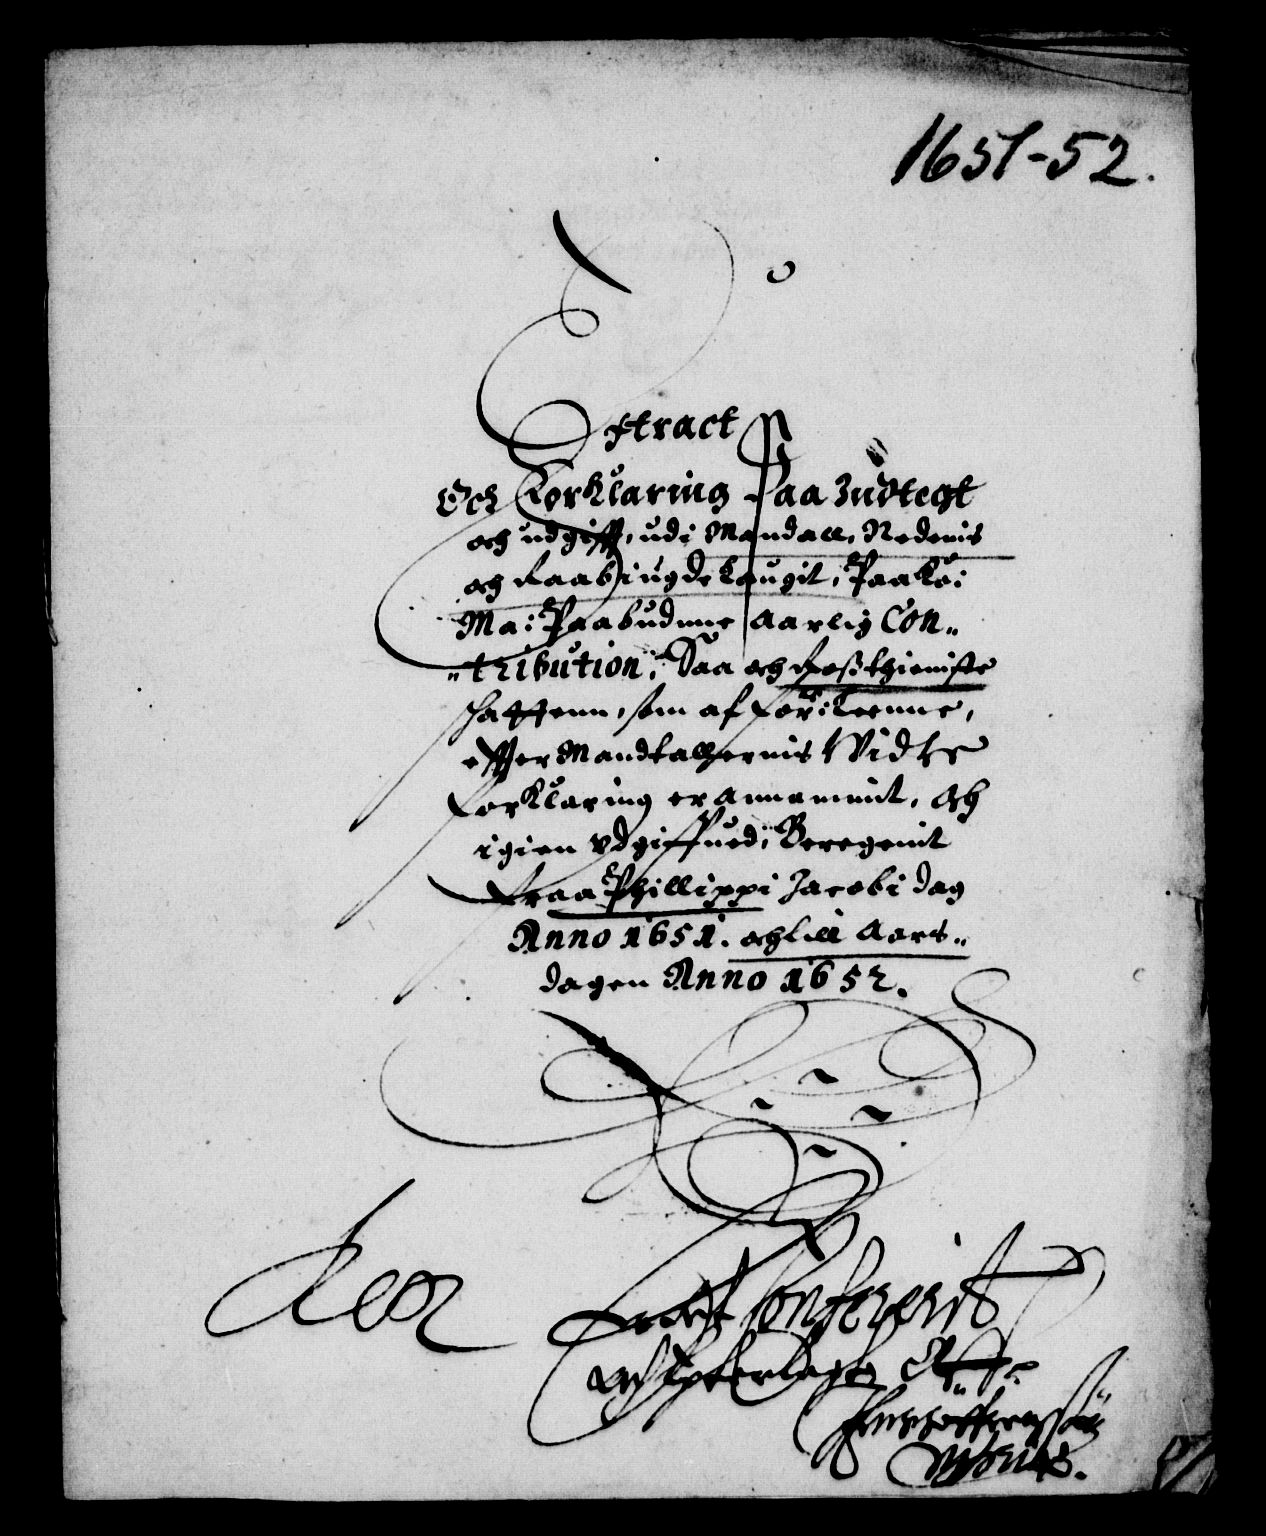 1651-52.
Extract
Och Forklaring Paa Indtegt
och udgifft, udi Mandall, Nedenis
och Raabÿiugdelaugit, Paa Kö:
Ma: Paabudne Aarlig Con„
„tribution, Saa och Rosthieniste
schatten, som af for:ne Leenne,
effter Mandtallernis Widre
forklaring er annammit, och
igien vdgiffued, Beregenit
fraa Phillippi Jacobi dag
Anno 1651. och till Aars„
dagen Anno 1652.
Confererit